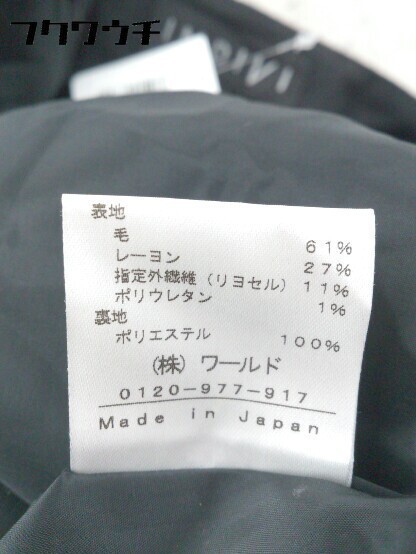 フクワウチ
表地
毛 61%
レーヨン 27%
指定外繊維 (リヨセル) 11%
ポリウレタン 1%
裏地
ポリエステル 100%
(株) ワールド
0120-977-917
Made in Japan